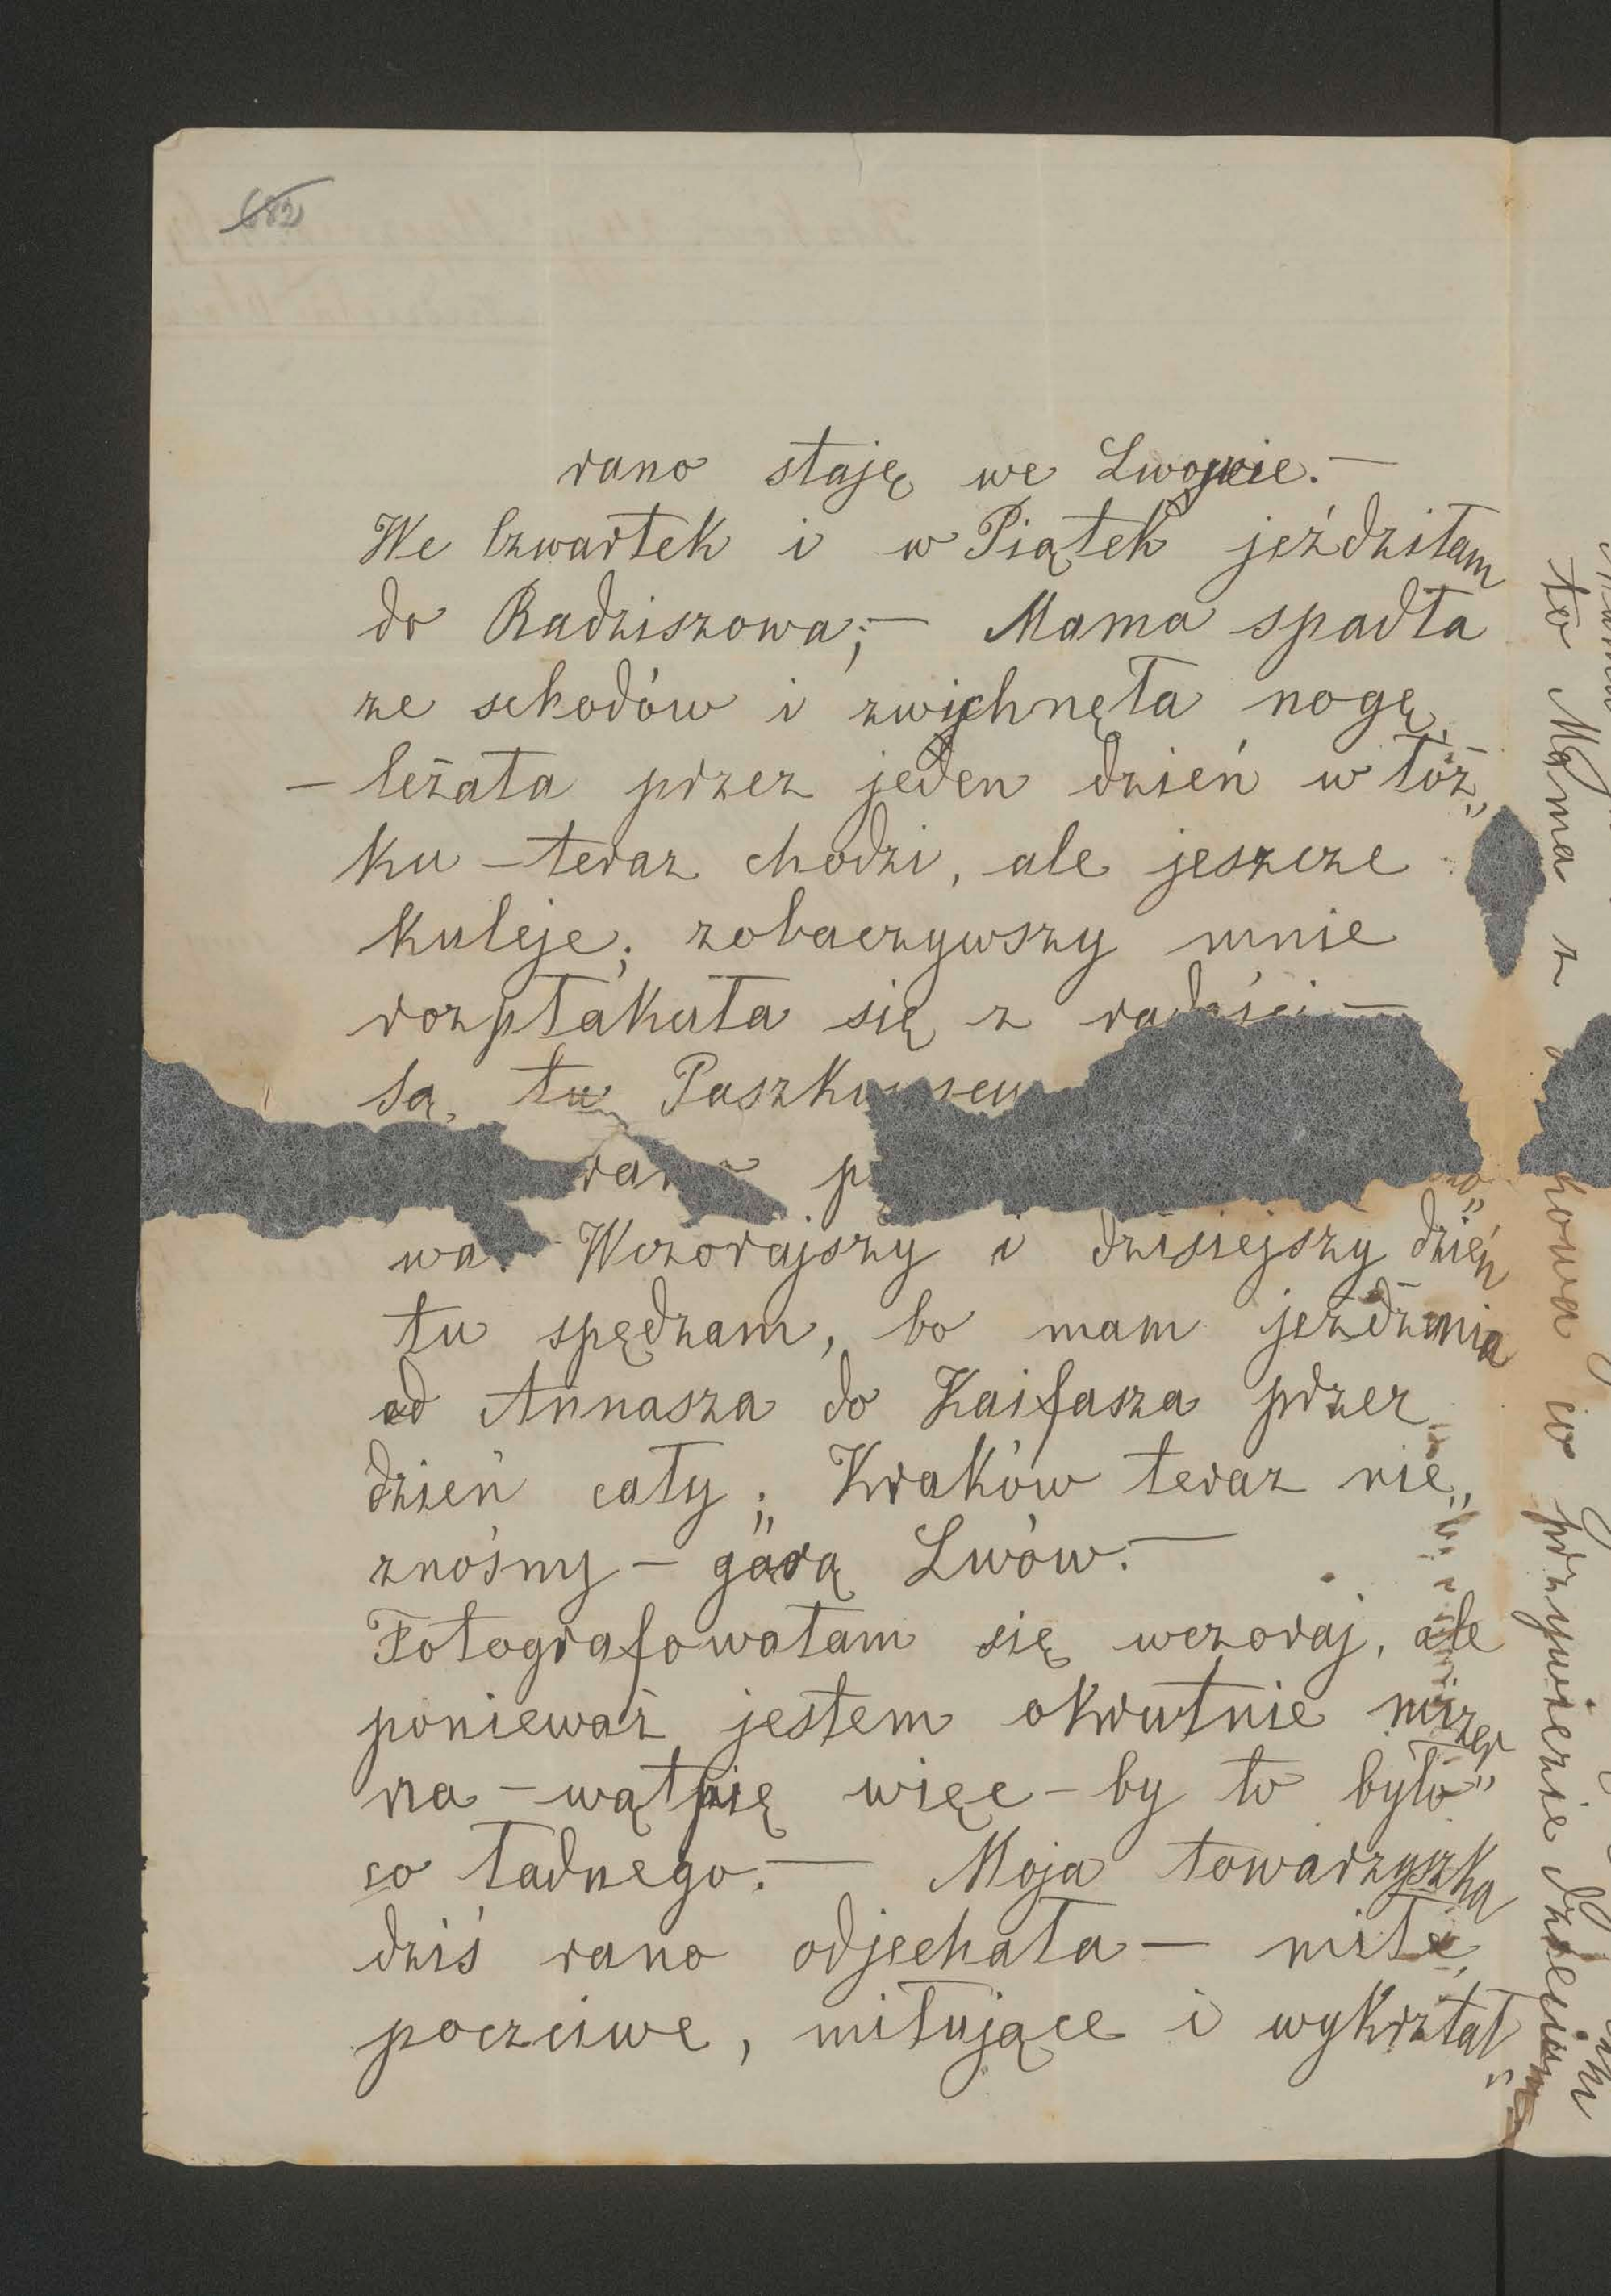 682
rano staję we Lwowie. —
We Czwartek i w Piątek jeździłam
do Radziszowa; — Mama spadła
ze schodów i zwichnęła nogę,
— leżała przez jeden dzień w łóż„
ku — teraz chodzi, ale jeszcze
kuleje; zobaczywszy mnie
rozpłakała się z radości —
Są tu
wa. Wczorajszy i dzisiejszy dzień
tu spędzam, bo mam jeżdżenia
od Annasza do Kaifasza przez
dzień cały; Kraków teraz nie„
znośny — górą Lwów. —
Fotografowałam się wczoraj, ale
ponieważ jestem okrutnie mizer„
na — wątpię więc — by to było
co ładnego. — Moja towarzyszka
dziś rano odjechała — miłe,
poczciwe, miłujące i wykształ„
to Mama z
howa co przywiezie